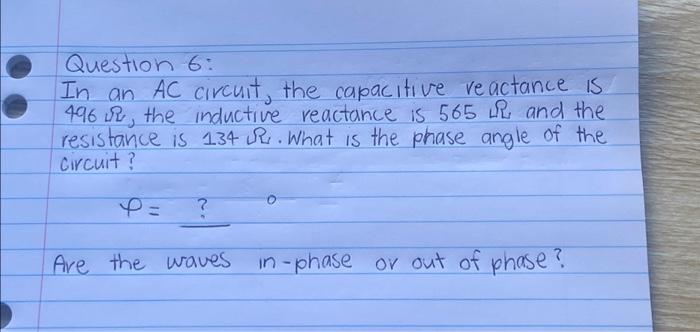 Question 6:
In an AC circuit, the capacitive reactance is
496 Ω, the inductive reactance is 565 Ω and the
resistance is 134 Ω. What is the phase angle of the
circuit?
φ = ? °
Are the waves in-phase or out of phase?